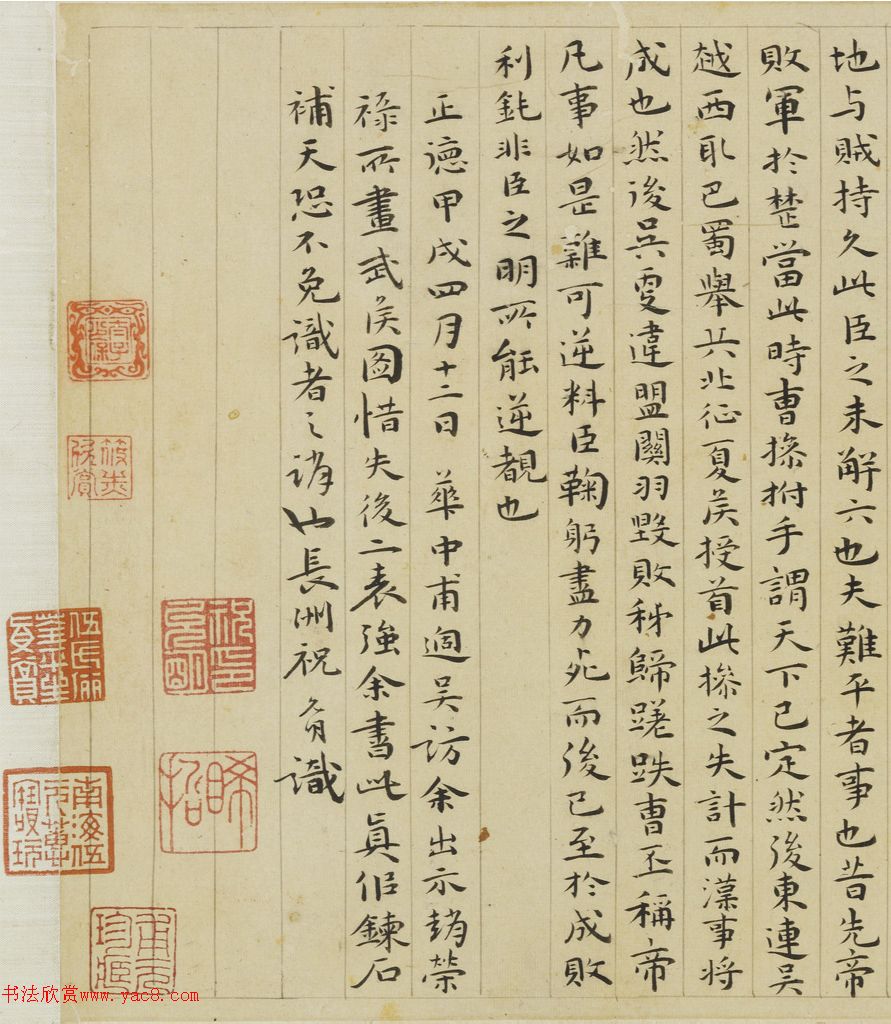 地与賊持久此臣之未解六也夫難平者事也昔先帝
敗軍於楚當此時曹操拊手謂天下已定然後東連吳
越西取巴蜀舉兵北征夏侯授首此操之失計而漢事將
成也然後吳更違盟關羽毀敗秭歸蹉跌曹丕稱帝
凡事如是難可逆料臣鞠躬盡力死而後已至於成敗
利鈍非臣之明所能逆覩也
正德甲戌四月十二日 華中甫過吳訪余出示趙榮
祿所畫武侯圖惜失後二表強余書此真佀鍊石
補天恐不免識者之誚也長洲祝允明識
祝允明印
晞哲
伍氏儷荃平生真賞
南海伍元蕙
书法欣赏www.yac8.com